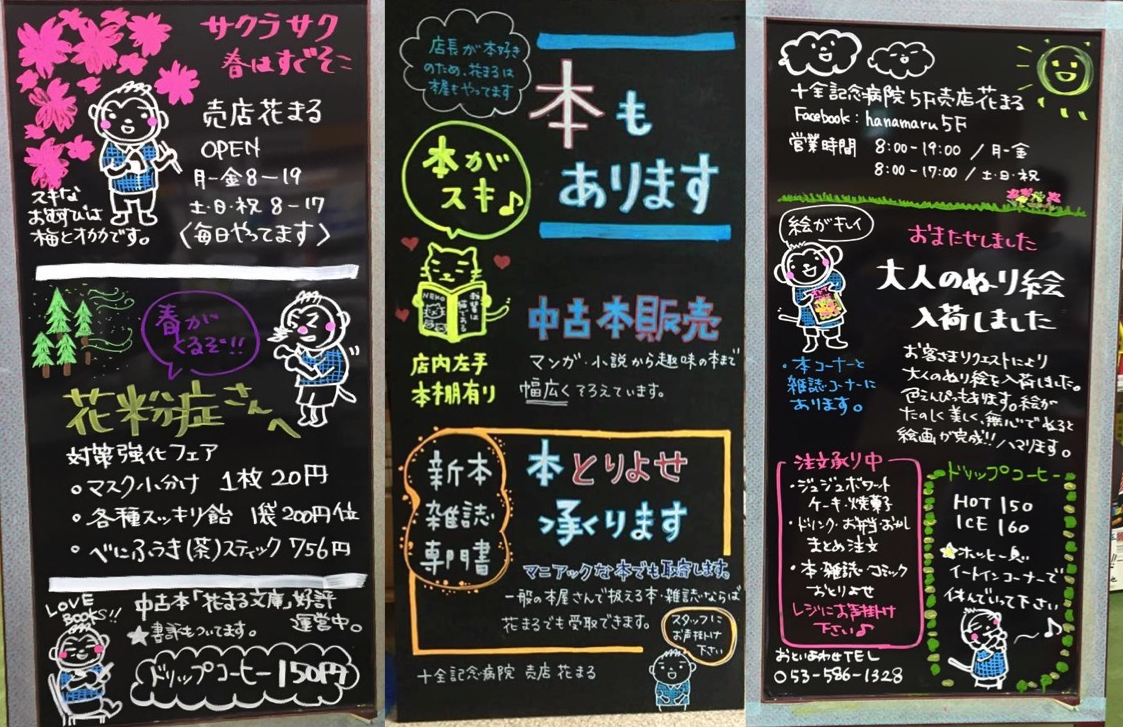 サクラサク
春はすぐそこ
売店花まる
OPEN
月-金 8-19
土・日・祝 8-17
〈毎日やってます〉
スキな
おむすびは
梅とオカカです。
春が
くるぞ!!
花粉症さんへ
対策強化フェア
。マスク小分け 1枚20円
。各種スッキリ飴 1袋200円位
。べにふうき(茶)スティック 756円
LOVE
BOOKS!!
中古本「花まる文庫」好評
運営中。
★書評もついてます。
ドリップコーヒー150円
店長が本好き
のため、花まるは
本屋もやってます
本も
あります
本が
スキ♪
NEKO
吾輩は
猫である
店内左手
本棚有り
中古本販売
マンガ・小説から趣味の本まで
幅広くそろえています。
新本
雑誌
専門書
本とりよせ
承くります
マニアックな本でも取寄します。
一般の本屋さんで扱える本・雑誌ならば
花まるでも受取できます。
スタッフに
お声掛け
下さい
十全記念病院 売店 花まる
十全記念病院5F売店花まる
Facebook:hanamaru5F
営業時間 8:00-19:00 /月-金
8:00-17:00 /土・日・祝
絵がキレイ
おまたせしました
大人のぬり絵
入荷しました
・本コーナーと
雑誌コーナーに
あります。
お客さまリクエストにより
大人のぬり絵を入荷しました。
色えんぴつもあります。絵が
たのしく美しく、無心でぬると
絵画が完成!!ハマります。
注文承り中
・ジュジュボワット
ケーキ・焼菓子
・ドリンク・お弁当・おかし
まとめ注文
・本・雑誌・コミック
おとりよせ
レジにお声掛け
下さい♪
おといあわせTEL
053-586-1328
ドリップコーヒー
HOT 150
ICE 160
★ホット一息
イートインコーナーで
休んでいって下さい